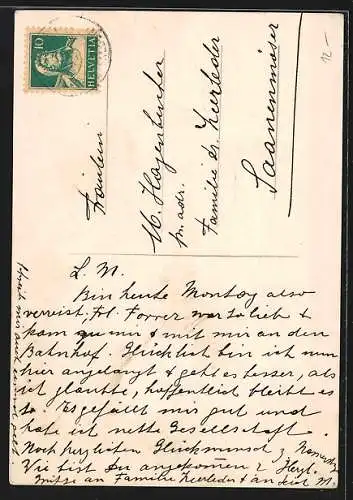 12.-
10
HELVETIA
Fräulein
M. Hagenbucher
p. adr.
Familie Dr. Zurleder
Saanenmöser
L. M.
Bin heute Montag also
verreist, Frl. Forrer war so lieb &
kam zu mir & mit mir an den
Bahnhof. Glücklich bin ich nun
hier angelangt & geht es besser, als
ich glaubte, hoffentlich bleibt es
so. Es gefällt mir gut und
habe ich nette Gesellschaft.
Noch herzlichen Glückwunsch z. Namenstg
Wie bist Du angekommen? Herzl.
Grüsse an Familie Zurleder & an Dich M.
Schreib mir auch wie es geht.